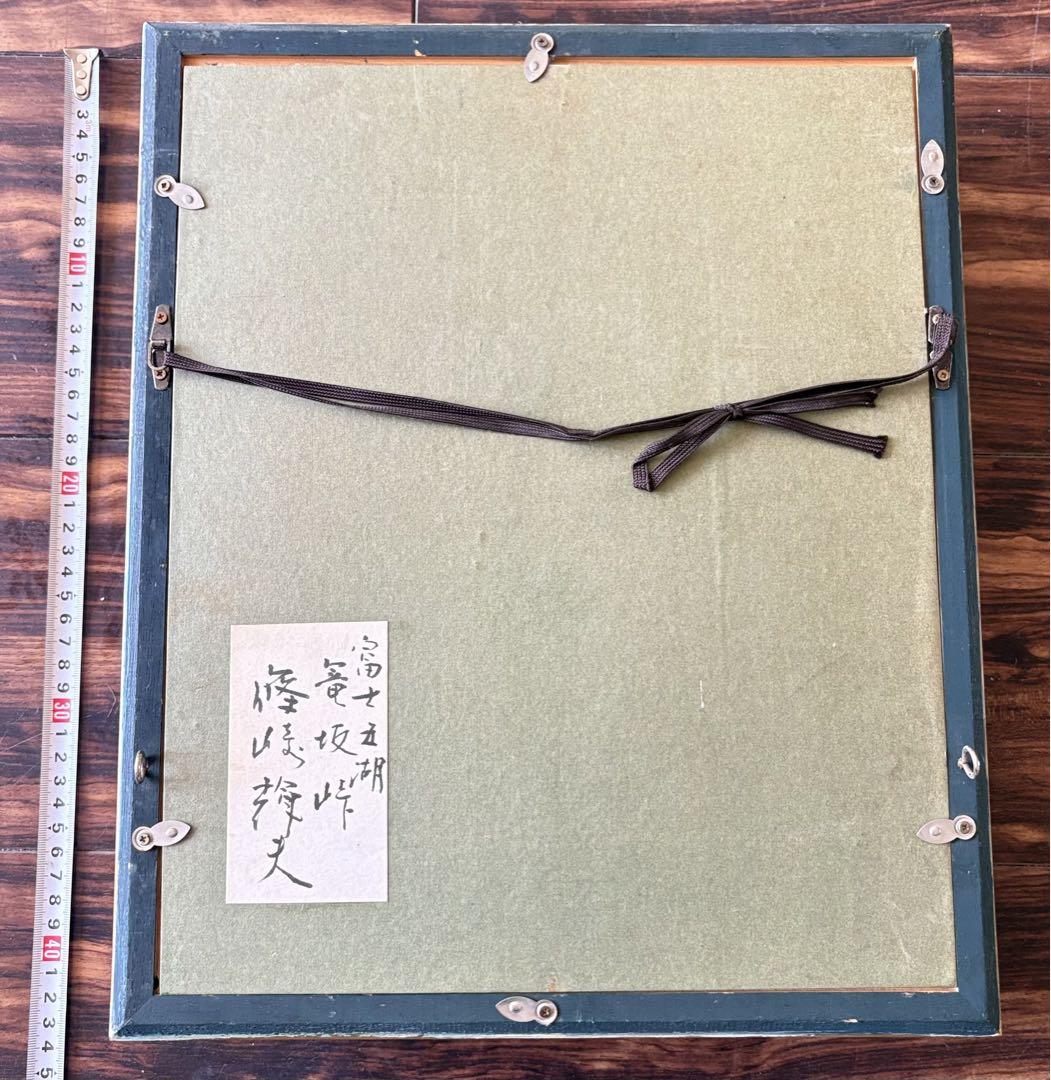 富士五湖
篭坂峠
篠崎輝夫
3 3m 4 5 6 7 8 9 10 1 2 3 4 5 6 7 8 9 20 1 2 3 4 5 6 7 8 9 30 1 2 3 4 5 6 7 8 9 40 1 2 3 4 5